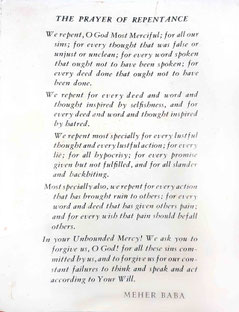 THE PRAYER OF REPENTANCE
We repent, O God Most Merciful; for all our
sins; for every thought that was false or
unjust or unclean; for every word spoken
that ought not to have been spoken; for
every deed done that ought not to have
been done.
We repent for every deed and word and
thought inspired by selfishness, and for
every deed and word and thought inspired
by hatred.
We repent most specially for every lustful
thought and every lustful action; for every
lie; for all hypocrisy; for every promise
given but not fulfilled, and for all slander
and backbiting.
Most specially also, we repent for every action
that has brought ruin to others; for every
word and deed that has given others pain;
and for every wish that pain should befall
others.
In your Unbounded Mercy! We ask you to
forgive us, O God! for all these sins com-
mitted by us, and to forgive us for our con-
stant failures to think and speak and act
according to Your Will.
MEHER BABA